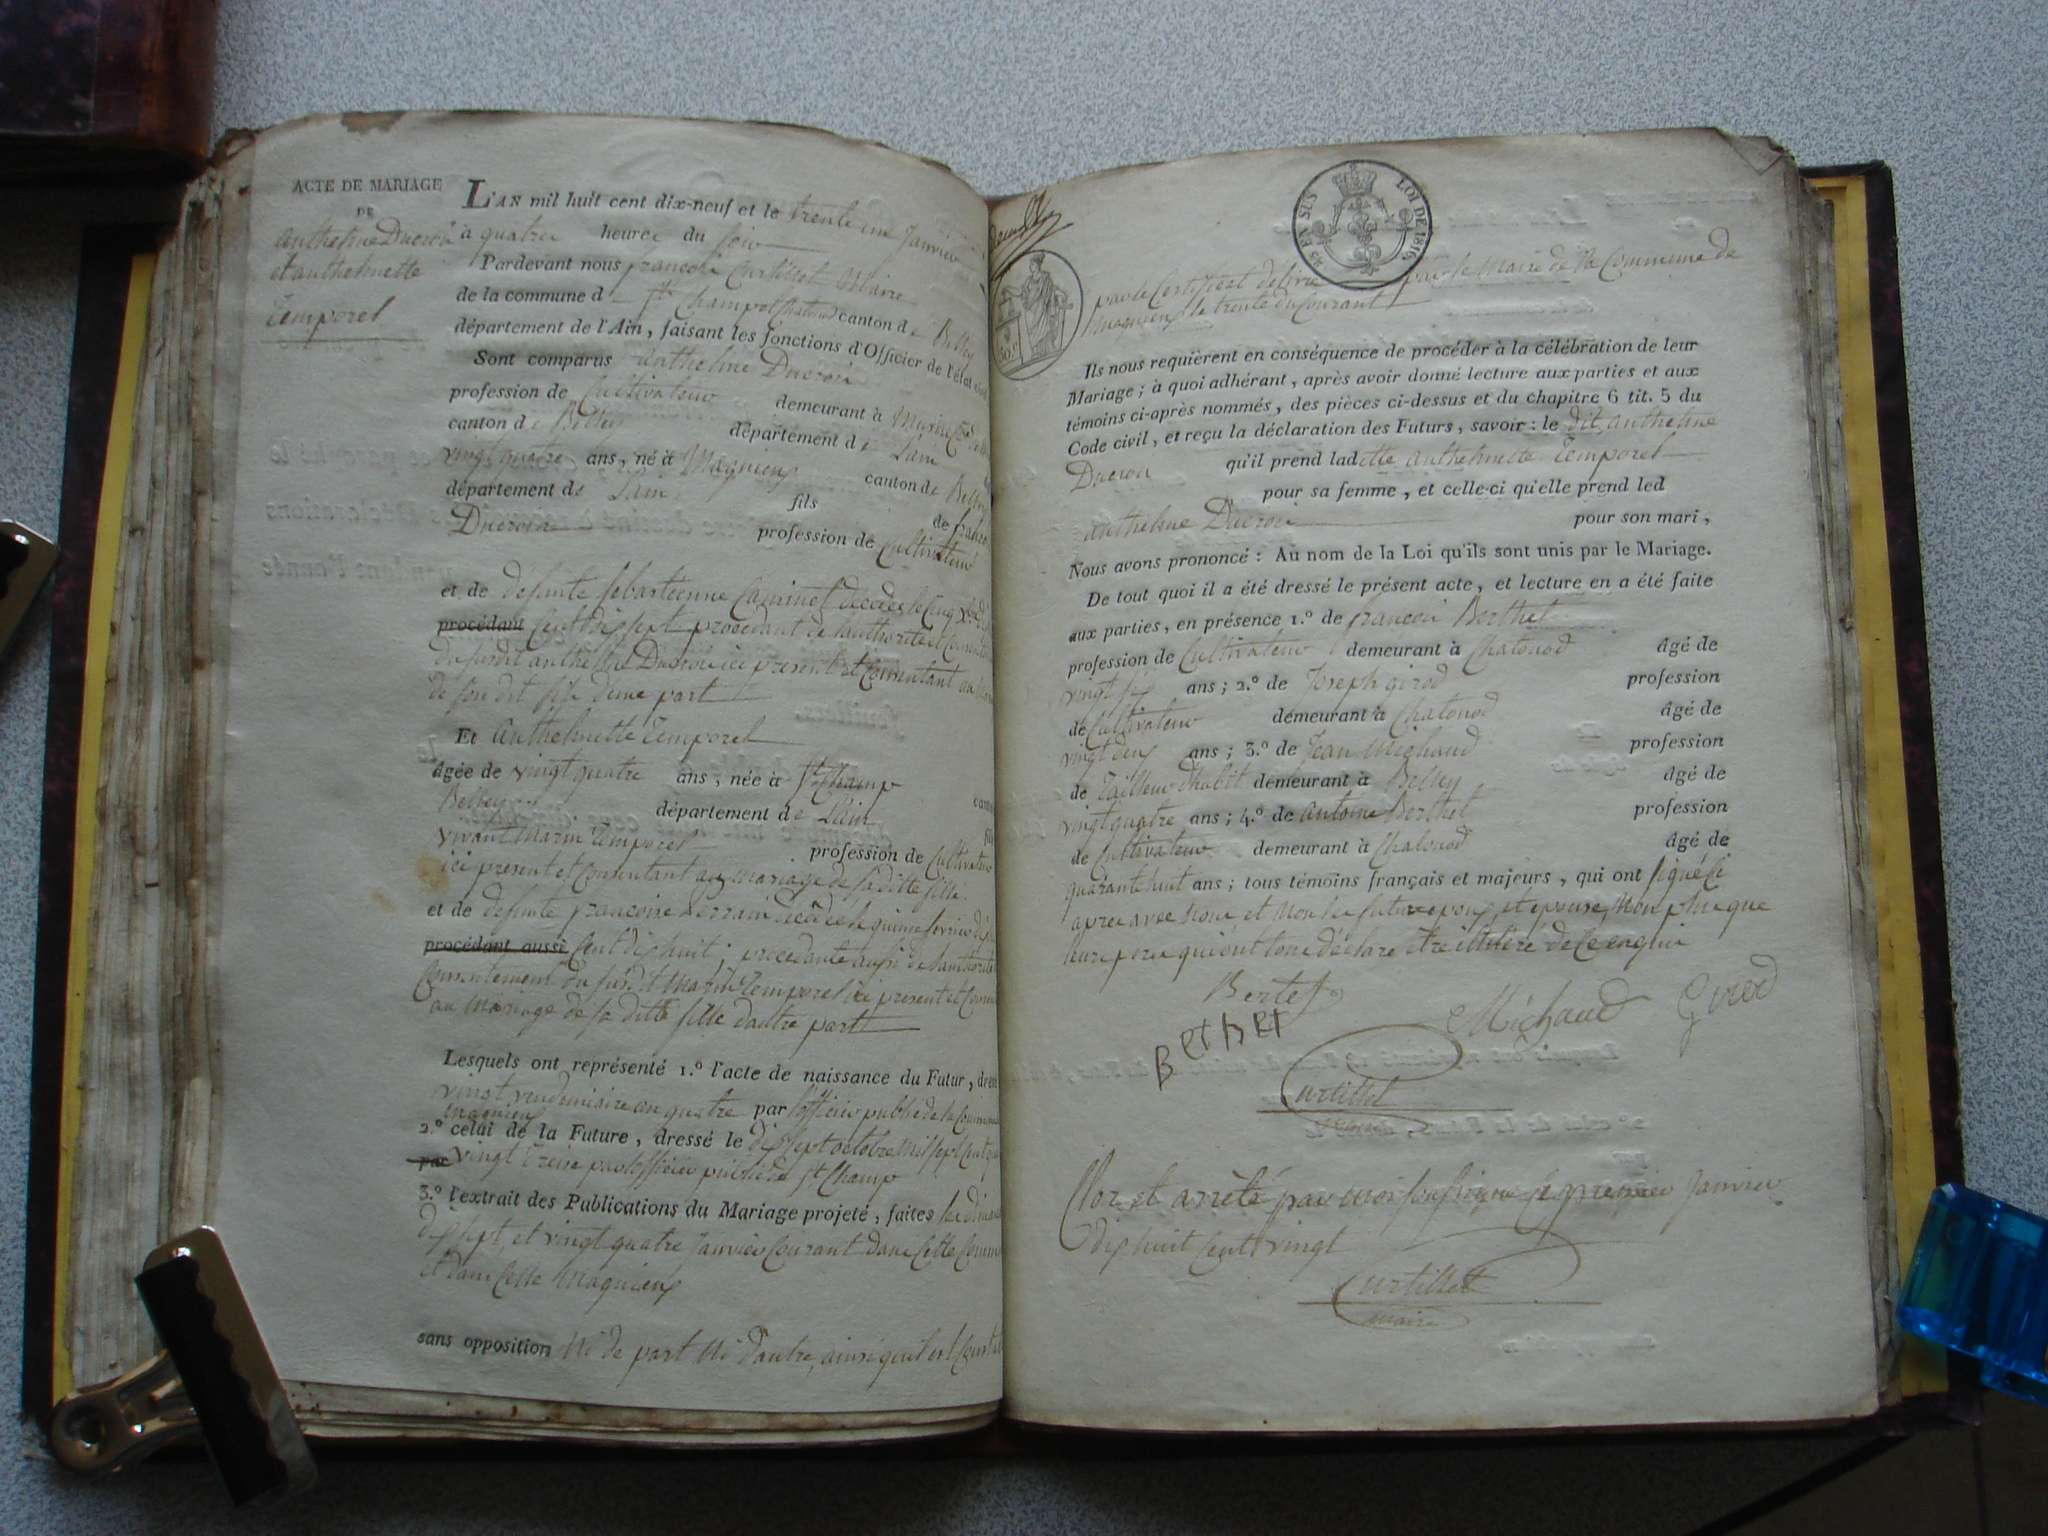 ACTE DE MARIAGE
DE
anthelme Ducroi
et anthelmette
Temporel
L'AN mil huit cent dix-neuf et le trente un Janvier
à quatre heures du soir
Pardevant nous françois Curtillet Maire
de la commune d St Champ Chatonod canton de Belley
département de l'Ain, faisant les fonctions d'Officier de l'état civil
Sont comparus anthelme Ducroi
profession de Cultivateur demeurant à
canton de Belley département de Lain
vingt quatre ans, né à Magnieu canton de Belley
département de Lain fils de
Ducroi profession de Cultivateur
et de defunte sebastienne décédée le cinq
procédant cent dix sept procedant de lauthorité et
du susdit anthelme Ducroi ici present et consentant au
de son dit fils d'une part
Et Anthelmette Temporel
âgée de vingt quatre ans, née à St Champ
Belley département de Lain
vivant Marin Temporel profession de Cultivateur
ici present et consentant au mariage de sa ditte fille
et de defunte françoise décédée le quinze fevrier dix
procédant aussi cent dix huit; procedante aussi de lauthorité
consentement du susdit Marin Temporel ici present et
au mariage de sa ditte fille dautre part
Lesquels ont représenté 1.º l'acte de naissance du Futur, dressé
vingt vendemiaire an quatre par l'officier public de la Commune
Magnieu
2.º celui de la Future, dressé le dix sept octobre mil sept cent
par vingt treize par lofficier public de St Champ
3.º l'extrait des Publications du Mariage projeté, faites les
dix sept, et vingt quatre Janvier courant dans cette
et dans celle Magnieu
sans opposition ni de part ni d'autre, ainsi quil est
25 EN SUS LOI DE 1816
par le Certificat delivré par le Maire de la Commune de
Magnieu le trente du courant
Ils nous requièrent en conséquence de procéder à la célébration de leur
Mariage; à quoi adhérant, après avoir donné lecture aux parties et aux
témoins ci-après nommés, des pièces ci-dessus et du chapitre 6 tit. 5 du
Code civil, et reçu la déclaration des Futurs, savoir: le dit anthelme
Ducroi qu'il prend ladette anthelmette Temporel
pour sa femme, et celle-ci qu'elle prend led
anthelme Ducroi pour son mari,
Nous avons prononcé: Au nom de la Loi qu'ils sont unis par le Mariage.
De tout quoi il a été dressé le présent acte, et lecture en a été faite
aux parties, en présence 1.º de françois Berthet
profession de Cultivateur demeurant à Chatonod âgé de
vingt six ans; 2.º de Joseph girod profession
de Cultivateur demeurant à Chatonod âgé de
vingt deux ans; 3.º de Jean Michaud profession
de Tailleur dhabit demeurant à Belley âgé de
vingt quatre ans; 4.º de Antoine Berthet profession
de Cultivateur demeurant à Chatonod âgé de
quarante huit ans; tous témoins français et majeurs, qui ont signé ci
apres avec nous et non les future epoux, et epouse, Non plus que
leurs peres qui ont tous déclaré être illitéré de ce enquis
Bertet
Michaud
Girod
Bertet
Curtillet
Clos et arrêté par moi soussigné le premier Janvier
dix huit cent vingt
Curtillet
maire